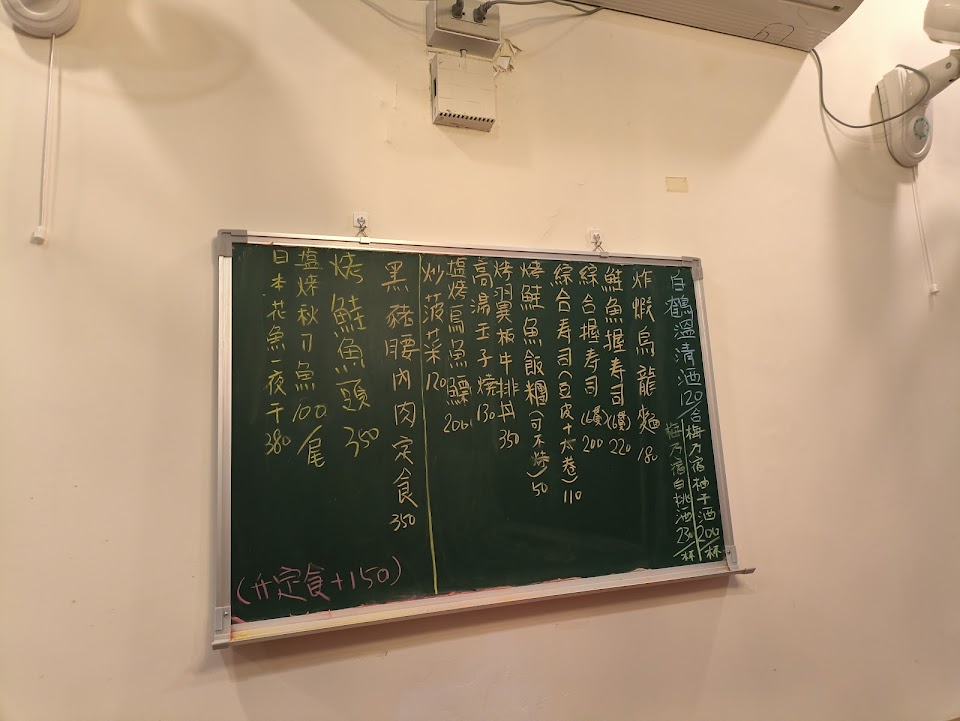 白鶴溫清酒120/合
梅乃宿柚子酒200/杯
梅乃宿白桃酒230/杯
炸蝦烏龍麵180
鮭魚握壽司(6貫)220
綜合握壽司(6貫)200
綜合壽司(豆皮+大卷)110
烤鮭魚飯糰(可不烤)50
烤羽翼板牛排丼350
高湯玉子燒130
塩烤烏魚鰾200
炒菠菜120
黑豬腰內肉定食350
烤鮭魚頭350
塩烤秋刀魚100/尾
日本花魚一夜干280
(升定食+150)